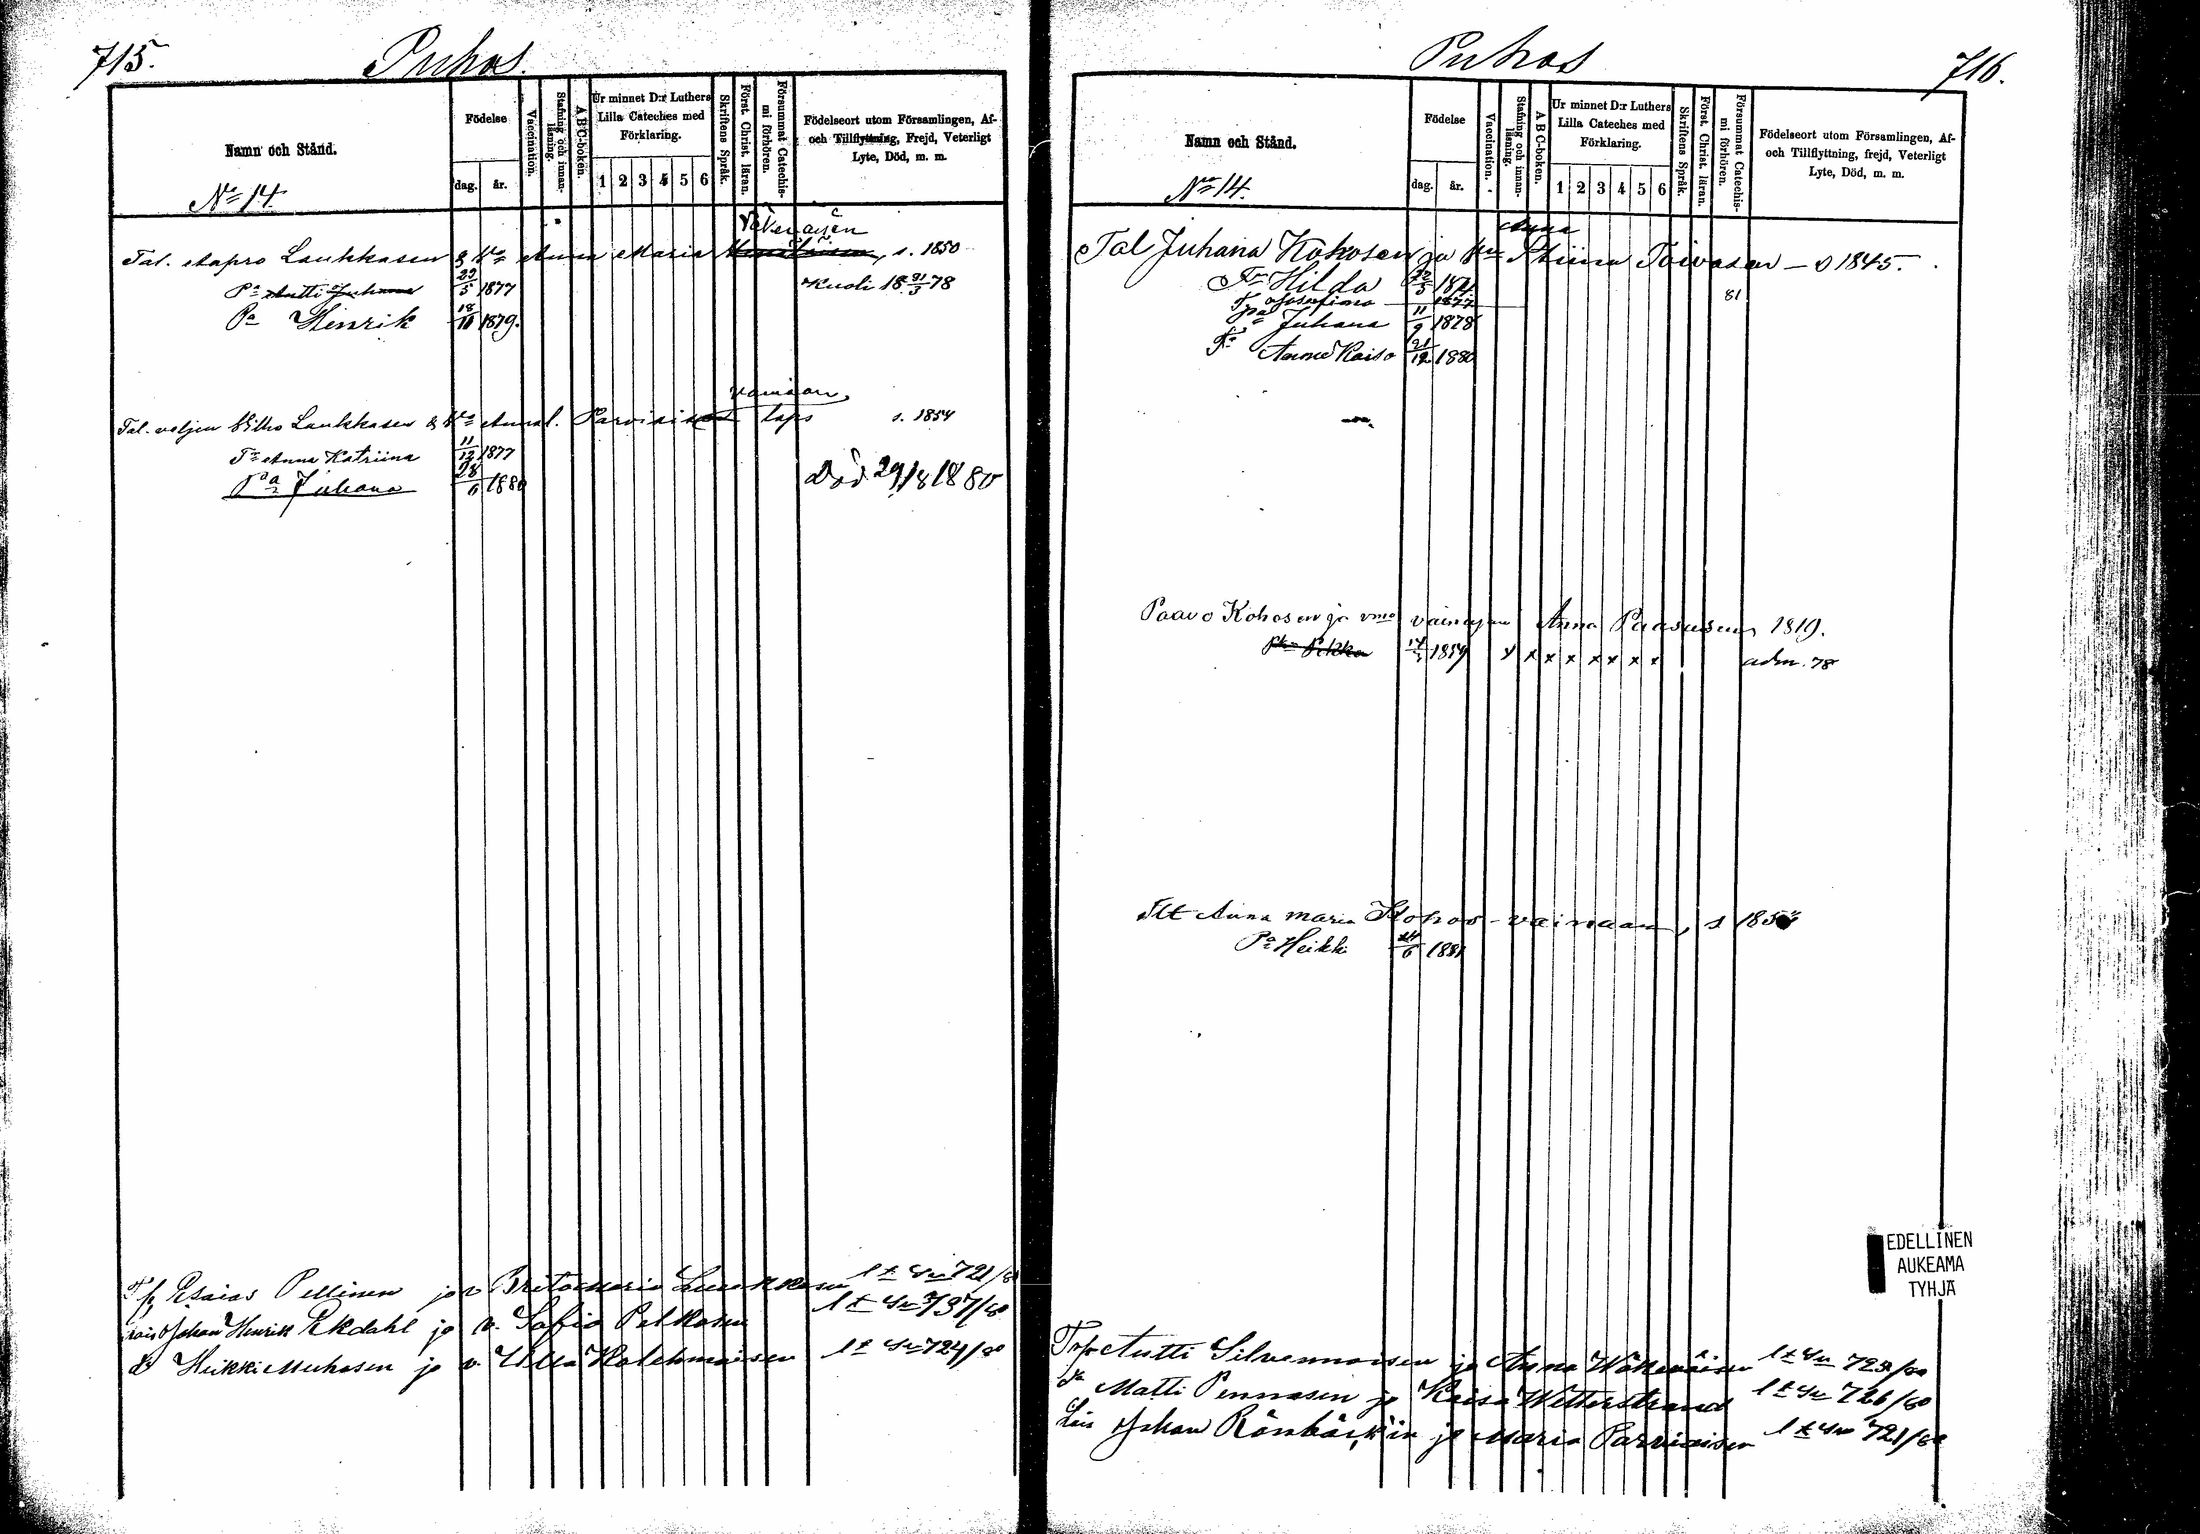 715.
Puhos.
Namn och Stånd.
Födelse
dag.
år.
Vaccination.
Stafning och innanläsning.
A B C-boken.
Ur minnet D:r Luthers Lilla Cateches med Förklaring.
1 2 3 4 5 6
Skriftens Språk.
Först. Christ. läran.
Försummat Catechismi förhören.
Födelseort utom Församlingen, Af- och Tillflyttning, Frejd, Veterligt Lyte, Död, m. m.
No 14.
Väkeväisen
Tal. Aapro Laukkasen & Vmo Anna Maria s. 1850
Pa Antti Juhana 22/5 1877 Kuoli 18 21/3 78
Pa Henrik 18/10 1879.
vainaan
Tal. veljen Wilho Laukkasen & Vmo Parviais laps s. 1854
Tr Anna Katriina 11/12 1877
Pa Juhana 28/6 1880 Död 29/8 1880
Esaias Pellinen ja v Brita Maria Laukkasen l. 721/8
Johan Henrik Ekdahl ja v. Sofia Pelkosen l. 737/80
d:o Heikki Muhosen ja v. Ulla Kolehmaisen l. 724/80
Puhos
716.
Namn och Stånd.
Födelse
dag.
år.
Vaccination.
Stafning och innanläsning.
A B C-boken.
Ur minnet D:r Luthers Lilla Cateches med Förklaring.
1 2 3 4 5 6
Skriftens Språk.
Först. Christ. läran.
Försummat Catechismi förhören.
Födelseort utom Församlingen, Af- och Tillflyttning, frejd, Veterligt Lyte, Död, m. m.
No 14.
Anna
Tal Juhana Kohosen ja Vm Stiina Toivasen – s 1845.
Tr Hilda 1874
Josefiina 1877 81
Juhana 11/9 1878
Tr Anna Kaisa 21/12 1880
Paavo Kohosen ja vmo vainajan Anna Paasusen 1819.
Pka Pekka 1859 x x x x x x x x adm. 78
Itt Anna Maria Kohos-vainaan, s 185
Pa Heikki 24/6 1881
EDELLINEN
AUKEAMA
TYHJÄ
Antti Silvennoisen ja Anna Wäkeväisen l. 725/80
Matti Pennasen ja Kaisa Wetterstrand l. 726/80
Lois Johan Rönbäck'in ja Maria Parviaisen l. 721/80